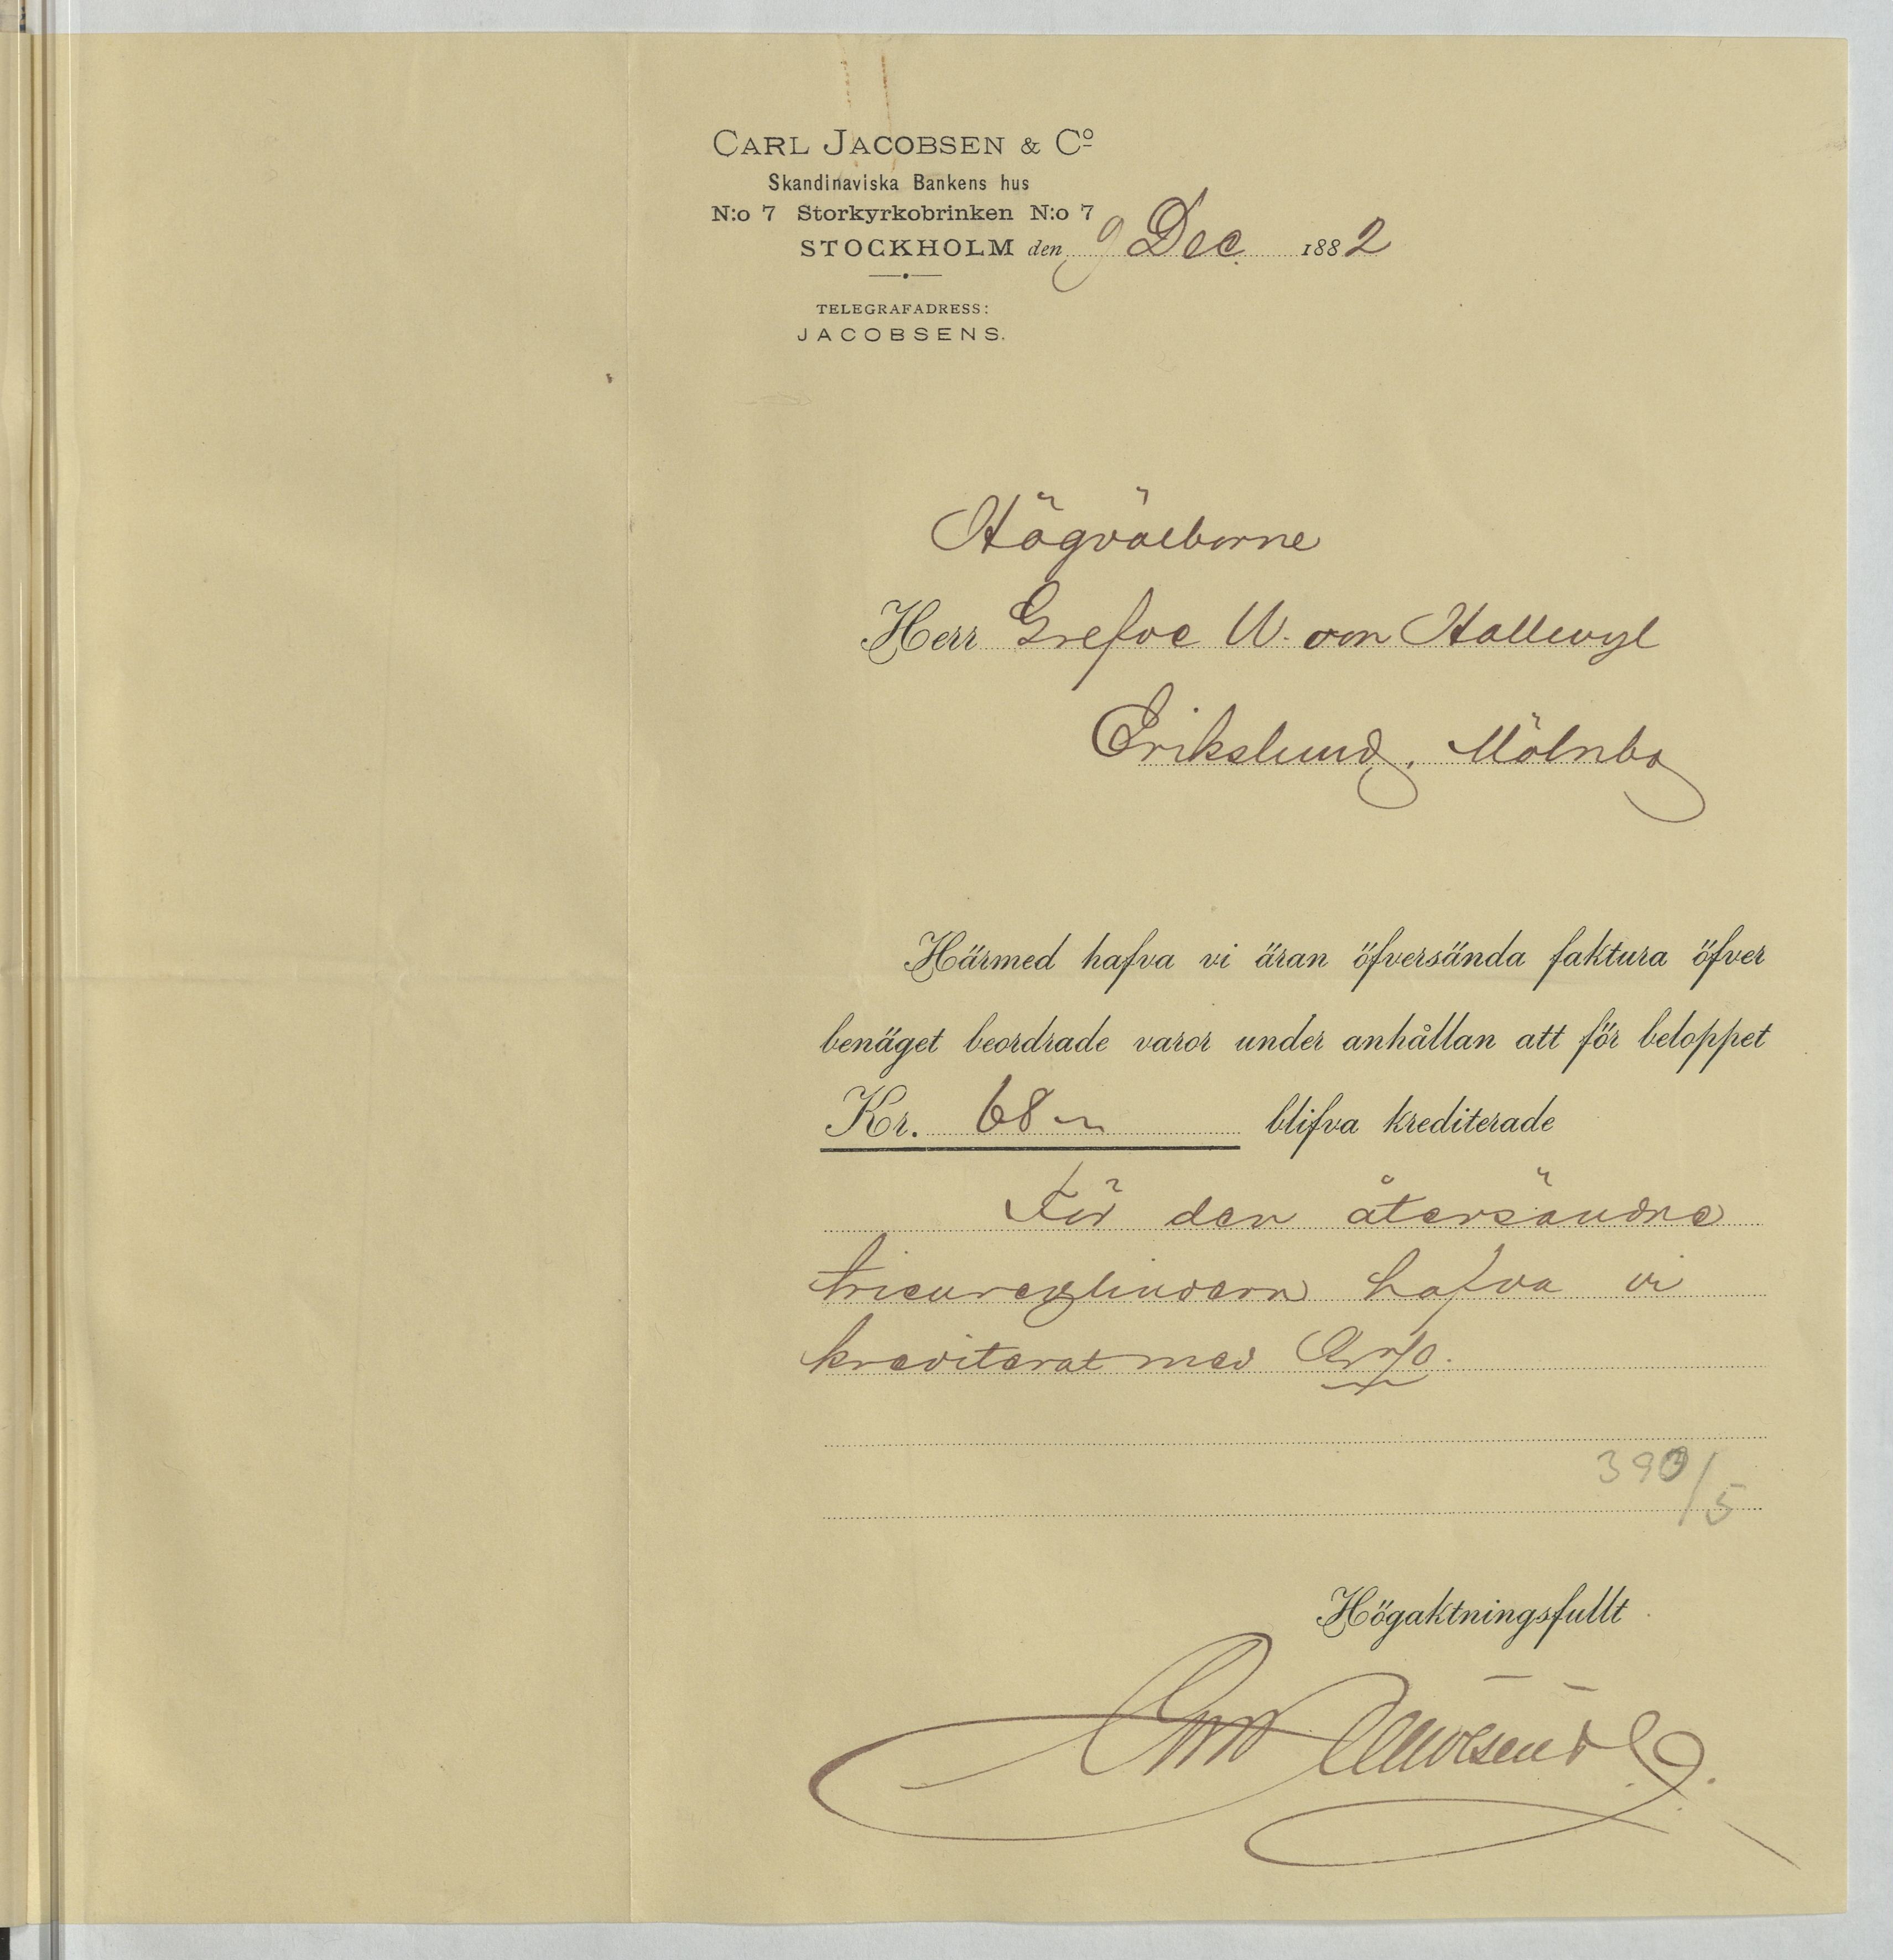 CARL JACOBSEN & Cº
Skandinaviska Bankens hus
N:o 7 Storkyrkobrinken N:o 7
STOCKHOLM den 9 Dec. 1882
TELEGRAFADRESS:
JACOBSENS.
Högvälborne
Herr Grefve W. von Hallwyl
Erikslund, Mölnbo
Härmed hafva vi äran öfversända faktura öfver
benäget beordrade varor under anhållan att för beloppet
Kr. 68 blifva krediterade
För den återsände
trieurcylindern hafva vi
krediterat med
390/5
Högaktningsfullt
Carl Jacobsen & Co.